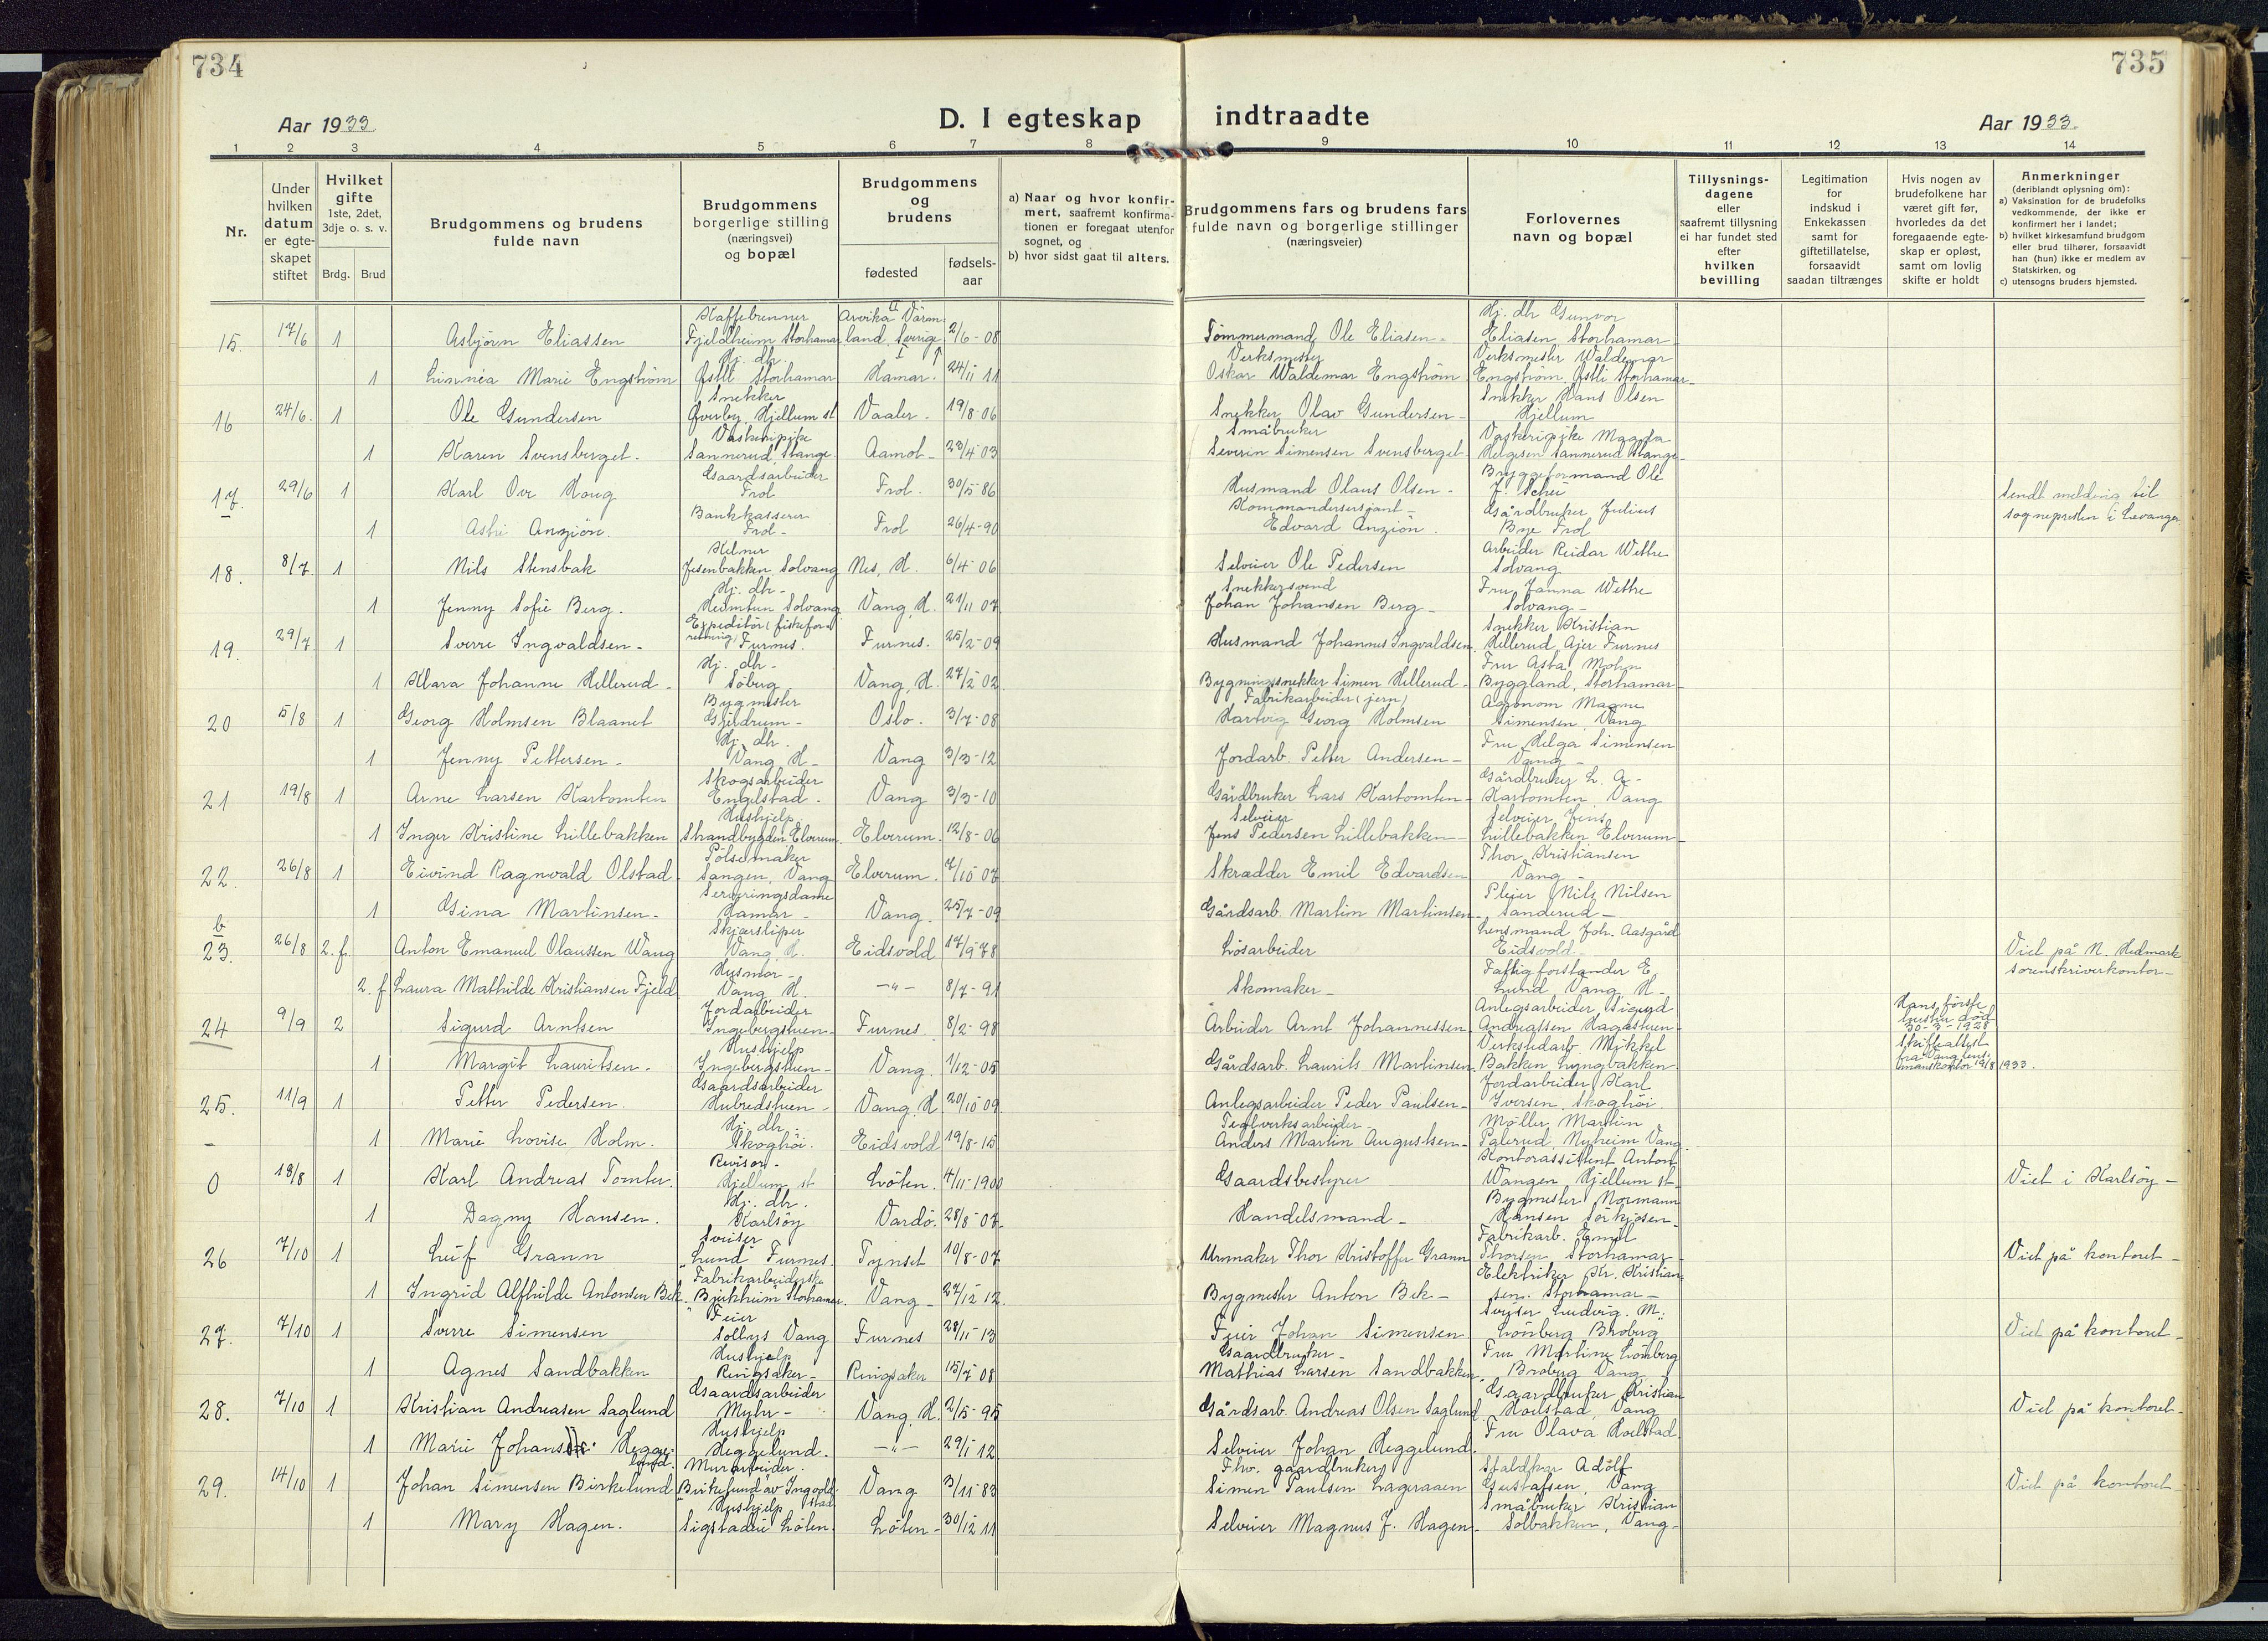 734
735
Aar 1933.
D. I egteskap indtraadte
Aar 1933.
1 2 3 4 5 6 7 8 9 10 11 12 13 14
Nr.
Under hvilken datum er egteskapet stiftet
Hvilket gifte 1ste, 2det, 3dje o. s. v.
Brdg. Brud
Brudgommens og brudens fulde navn
Brudgommens borgerlige stilling (næringsvei) og bopæl
Brudgommens og brudens
fødested
fødsels-aar
a) Naar og hvor konfirmert, saafremt konfirmationen er foregaat utenfor sognet, og
b) hvor sidst gaat til alters.
Brudgommens fars og brudens fars fulde navn og borgerlige stillinger (næringsveier)
Forlovernes navn og bopæl
Tillysningsdagene eller saafremt tillysning ei har fundet sted efter hvilken bevilling
Legitimation for indskud i Enkekassen samt for giftetillatelse, forsaavidt saadan tiltrænges
Hvis nogen av brudefolkene har været gift før, hvorledes da det foregaaende egteskap er opløst, samt om lovlig skifte er holdt
Anmerkninger (deriblandt oplysning om):
a) Vaksination for de brudefolks vedkommende, der ikke er konfirmert her i landet;
b) hvilket kirkesamfund brudgom eller brud tilhører, forsaavidt han (hun) ikke er medlem av Statskirken, og
c) utensogns bruders hjemsted.
15. 17/6 1 Asbjörn Eliassen Kaffebrenner Fjeldheim Storhamar Arvika Värmland, Sverige 2/6-08 Tömmermand Ole Eliasen- Hj. dtr Gunvor Eliasen Storhamar
1 Linnéa Marie Engström Hj. dtr. Östli Storhamar Hamar. 24/11 11 Verksmester Oskar Waldemar Engström Verksmester Waldemar Engström, Östli Storhamar-
16 24/6. 1 Ole Gundersen Snekker Överby, Hjellum st Vaaler- 19/8-06 Snekker Olav Gundersen- Snekker Hans Olsen Hjellum
1 Karen Svensberget. Vaskeripike Sannerud, Stange- Aamot- 23/4-03 Småbruker Severin Simensen Svensberget- Vaskeripike Magda Helgesen Sannerud Stange-
17. 29/6 1 Karl Ove Haug Gaardsarbeider Frol Frol. 30/5-86 Husmand Olaus Olsen- Byggeformand Ole J. Scheie Sendt melding til sognepresten i Levanger
1 Astri Anziön. Bankkasserer Frol- Frol 26/4-90 Kommandersersjant- Edvard Anziön. Gårdbruker Julius Bye Frol
18. 8/7 1 Nils Stensbak Kelner Jesenbakken, Solvang Nes, H. 6/4-06 Selveier Ole Pedersen Arbeider Reidar Wethe Solvang
1 Jenny Sofie Berg. Hj. dtr- Heimtun Solvang Vang, H. 21/11 07 Snekkersvend Johan Johansen Berg- Fru Janna Wethe Solvang-
19. 29/7 1 Sverre Ingvaldsen- Expeditör (fiskeforretning) Furnes. Furnes. 25/2-09 Husmand Johannes Ingvaldsen. Snekker Kristian Hellerud Ajer Furnes
1 Klara Johanne Hellerud- Hj. dtr- Söberg Vang, H. 27/2 02 Bygningssnekker Simen Hellerud- Fru Asta Mohn Byggland, Storhamar-
20 5/8 1 Georg Holmsen Blaanet Bygmester Gjeldrum- Oslo. 3/7-08 Fabrikarbeider (jern) Hartvig Georg Holmsen Agronom Magne Simensen, Vang
1 Jenny Pettersen- Hj. dtr. Vang H- Vang 3/3-12 Jordarb. Petter Andersen- Fru Helga Simensen Vang-
21 19/8 1 Arne Larsen Kartomten Skogsarbeider Engelstad. Vang 3/3-10 Gårdbruker Lars Kartomten- Gårdbruker L. A- Kartomten, Vang
1 Inger Kristine Lillebakken Hushjelp Strandbygden Elverum. Elverum. 12/8-06 Selveier Jens Pedersen Lillebakken- Selveier Jens Lillebakken Elverum-
22. 26/8 1 Eivind Ragnvald Olstad Pölsemaker Sangen, Vang Elverum. 7/10 07. Skrædder Emil Edvardsen Thor Kristiansen Vang-
1 Gina Martinsen- Serveringsdame Hamar- Vang. 25/7-09 Gårdsarb. Martin Martinsen- Pleier Nils Nilsen Sanderud-
b
23. 26/8 2. f. Anton Emanuel Olaussen Wang Skjærsliper Vang, H. Eidsvold 17/9-78 Lösarbeider Lensmand Joh. Aasgård Eidsvold.- Viet på N. Hedmark sorenskriverkontor-
2. f Laura Mathilde Kristiansen Fjeld Husmor- Vang H. -"- 8/7-91 Skomaker- Fattigforstander E Lund, Vang H-
24 9/9 2 Sigurd Arntsen Jordarbeider Ingebergstuen- Furnes. 8/2-98 Arbeider Arnt Johannessen Anlegsarbeider Sigurd Andreassen Hagastuen- Hans förste hustru död 30-3-1928 Skifteattest fra Vang lensmanskontor 19/8 1933.
1 Margit Lauritsen- Hushjelp Ingebergstuen- Vang. 1/12-05 Gårdsarb. Laurits Martinsen. Verkstedarb. Mikkel Bakken Lyngbakken
25. 11/9 1 Petter Pedersen. Gaardsarbeider Hubredstuen- Vang, H 20/10 09 Anlegsarbeider Peder Paulsen- Jordarbeider Karl Iversen, Skoghöi.
- 1 Marie Lovise Holm. Hj. dtr. Skoghöi. Eidsvold 19/8-15 Teglverksarbeider- Anders Martin Augustsen- Möller Martin Palerud, Nyheim Vang
0 19/8 1 Karl Andreas Tomter. Revisor- Hjellum st Löten. 4/11-1900 Gaardsbestyrer Kontorassistent Anton Wangen Hjellum st- Viet i Karlsöy-
1 Dagny Hansen. Hj. dtr. Karlsöy Vardö. 28/8-07. Handelsmand- Bygmester Normann Hansen Sörkjosen-
26 7/10 1 Leif Grann Sveiser "Lund" Furnes. Tynset 10/8-07 Urmaker Thor Kristoffer Grann Fabrikarb. Egmil Thorsen, Storhamar- Viet på kontoret-
1 Ingrid Alfhilde Antonsen Bek. Fabrikarbeiderske "Bjerkheim" Storhamar. Vang- 27/12 12. Bygmester Anton Bek- Elektriker Kr. Kristiansen. Storhamar-
27. 7/10 1 Sverre Simensen Feier Sollys Vang Furnes 28/11-13 Feier Johan Simensen Sveiser Ludvig. M. Lönberg, Broberg Viet på kontoret-
1 Agnes Sandbakken Hushjelp Ringsaker- Ringsaker 15/7 08 Gaardbruker- Mathias Larsen Sandbakken. Fru Martine Lönberg Broberg Vang-
28. 7/10 1 Kristian Andreasen Saglund Gaardsarbeider Myhr- Vang, H. 2/5-95 Gårdsarb. Andreas Olsen Saglund. Gaardbruker Kristian Hoelstad, Vang Viet på kontoret-
1 Marie Johans Heggelund. Hushjelp Heggelund. -"- 29/1 12 Selveier Johan Heggelund. Fru Olava Hoelstad.
29. 14/10 1 Johan Simensen Birkelund Murarbeider. "Birkelund" av Ingvoldstad Vang 3/11-83 Fhv. gaardbruker Simen Paulsen Lageraaen Staldkar Adolf Gustafsen, Vang Viet på kontoret
1 Mary Hagen. Hushjelp Sigstadeie Löten. Löten- 30/12 11 Selveier Magnus J. Hagen- Småbruker Kristian Solbakken, Vang-